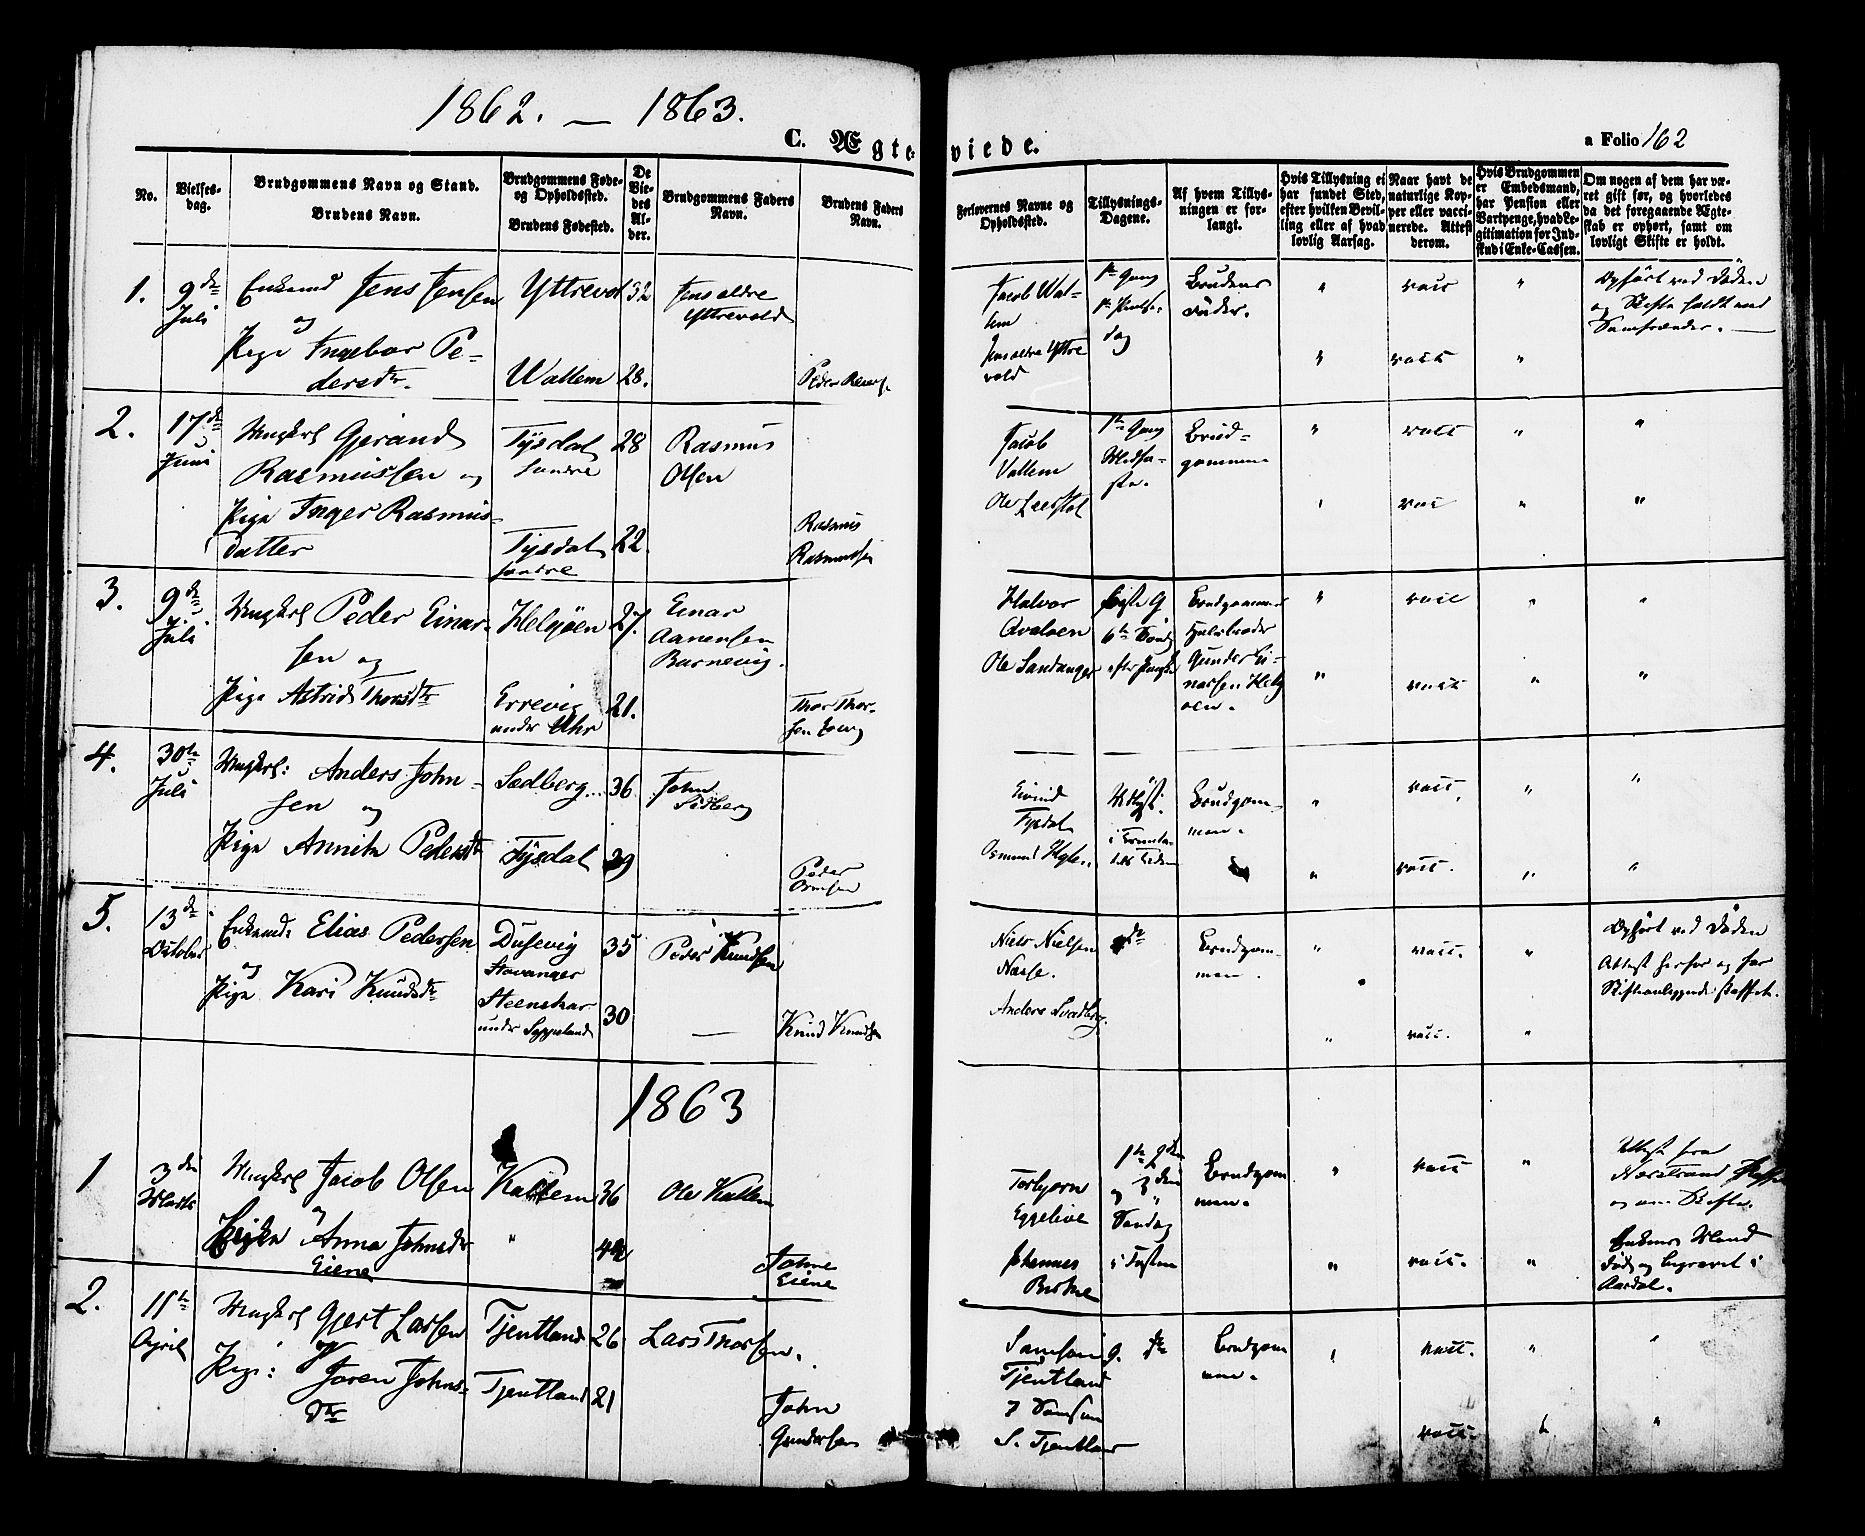 1862. — 1863.
C. Ægteviede.
a Folio 162
No.
Vielses-
dag.
Brudgommens Navn og Stand.
Brudens Navn.
Brudgommens Føde-
og Opholdssted.
Brudens Fødested.
De
Vie-
des
Al-
der.
Brudgommens Faders
Navn.
Brudens Faders
Navn.
Forlovernes Navne og
Opholdssted.
Tillysnings-
Dagene.
Af hvem Tillys-
ningen er for-
langt.
Hvis Tillysning ei
har fundet Sted,
efter hvilken Bevil-
ling eller af hvad
lovlig Aarsag.
Naar havt de
naturlige Kop-
per eller vacci-
nerede. Attest
derom.
Hvis Brudgommen
er Embedsmand,
har Pension eller
Vartpenge, hvad Le-
gitimation for Ind-
skud i Enke-Cassen.
Om nogen af dem har væ-
ret gift før, og hvorledes
da det foregaaende Ægte-
skab er ophørt, samt om
lovligt Skifte er holdt.
1.
9de
Juli
Enkemd Jens Jensen
og
Pige Ingebor Pe-
dersdr.
Yttrevol
Wallem
32
28.
Jens eldre
Yttrevold
Peder
Jacob Wal-
lem
Jens eldre Yttre
vold
1ste Gang
dag
Brudens
Fader.
"
"
vacc
vacc
"
"
Ophørt ved Døden
og Skifte holdt med
Samfrænder. —
2.
17de
Juni
Ungkrl Gjerand
Rasmussen og
Pige Inger Rasmus-
datter
Tysdal
søndre
Tysdal
søndre
28
22.
Rasmus
Olsen
Rasmus
Rasmussen
Jacob
Vallem
Ole
1ste Gang
Brud-
gommen
"
vacc
vac
"
"
"
"
3.
9de
Juli
Ungkrl Peder Einar-
sen og
Pige Astrid Thorsdr
Helgøen
Errevig
under Uhr
27.
21.
Einar
Aanensen
Barnevig.
Thor Thor-
sen
Halvor
Qvaloen
Ole Sandanger
6te
Brudgommens
Halvbroder
Gunder Ei-
narsen Helg
oen.
"
"
vacc
vacc
"
"
"
"
4.
30te
Juli
Ungkrl: Anders John-
sen og
Pige Annita Pedersdr
Sedberg
Tysdal
36
39
John
Sedberg
Peder
Ormsen
Eivind
Tysdal
Osmund
Brudgom-
men.
"
"
vacc.
vacc.
"
"
"
"
5.
13de
October
Enkemd. Elias Pedersen
og
Pige Kari Knudsdr
Dusevig
Stavanger
Steenskar
under
35
30
Peder Knudsen
—
Knud Knudsen
Niels Nielsen
Anders Svadberg.
do
Brudgom-
men.
"
"
vacc.
vacc.
"
"
Ophørt ved Døden
Attest herfor og for
1863
1
3die
Marts
Ungkrl Jacob Olsen
og
Anna Johnsdr
Eiene
Kallem
"
36
Ole Kallem
Johne
Eiene
Torbjørn
Eggelive
Johannes
1ste 2den
og 3die
Søndag
i Fasten
Brudgom
men.
"
"
vacc
vacc.
"
"
Attest fra
Norstrand
og om Skifte.
Enkens Mand
død og begravet i
Aardal.
2.
11te
April
Ungkrl Gjert Larsen
og
Pige: Joren Johns-
dtr
Tjentland
Tjentland
26
21
Lars Thorsen.
John
Gundersen
Samson
Tjentland
Samson
S. Tjentland
do
Brudgom
men.
"
vacc.
vacc.
"
"
"